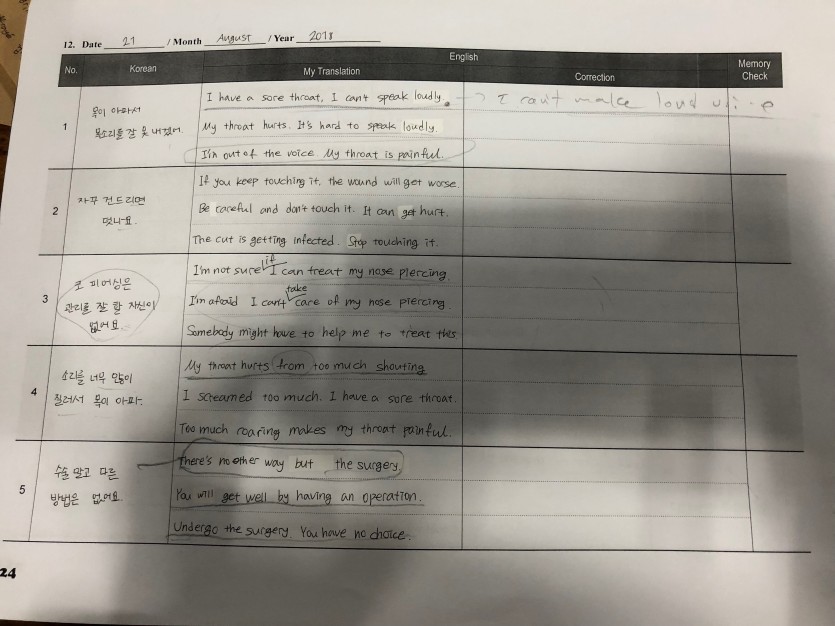 12. Date 21 / Month August / Year 2018
No. Korean English
My Translation Correction Memory Check
1
목이 아파서
목소리를 잘 못 내겠어.
I have a sore throat. I can't speak loudly. → I can't make loud
My throat hurts. It's hard to speak loudly.
I'm out of the voice My throat is painful.
2
자꾸 건드리면
덧나요.
If you keep touching it, the wound will get worse.
Be careful and don't touch it. It can get hurt.
The cut is getting infected. Stop touching it.
3
코 피어싱은
관리를 잘 할 자신이
없어요.
I'm not sure if I can treat my nose piercing.
I'm afraid I can't take care of my nose piercing.
Somebody might have to help me to treat this
4
소리를 너무 많이
질러서 목이 아파.
My throat hurts from too much shouting
I screamed too much. I have a sore throat.
Too much roaring makes my throat painful.
5
수술 말고 다른
방법은 없어요.
There's no other way but the surgery.
You will get well by having an operation.
Undergo the surgery. You have no choice.
24